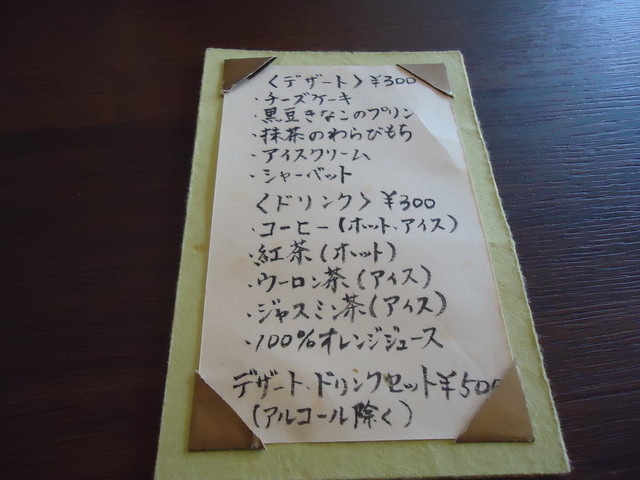 〈デザート〉¥300
・チーズケーキ
・黒豆きなこのプリン
・抹茶のわらびもち
・アイスクリーム
・シャーベット
〈ドリンク〉¥300
・コーヒー(ホット、アイス)
・紅茶(ホット)
・ウーロン茶(アイス)
・ジャスミン茶(アイス)
・100%オレンジジュース
デザート・ドリンクセット¥500
(アルコール除く)